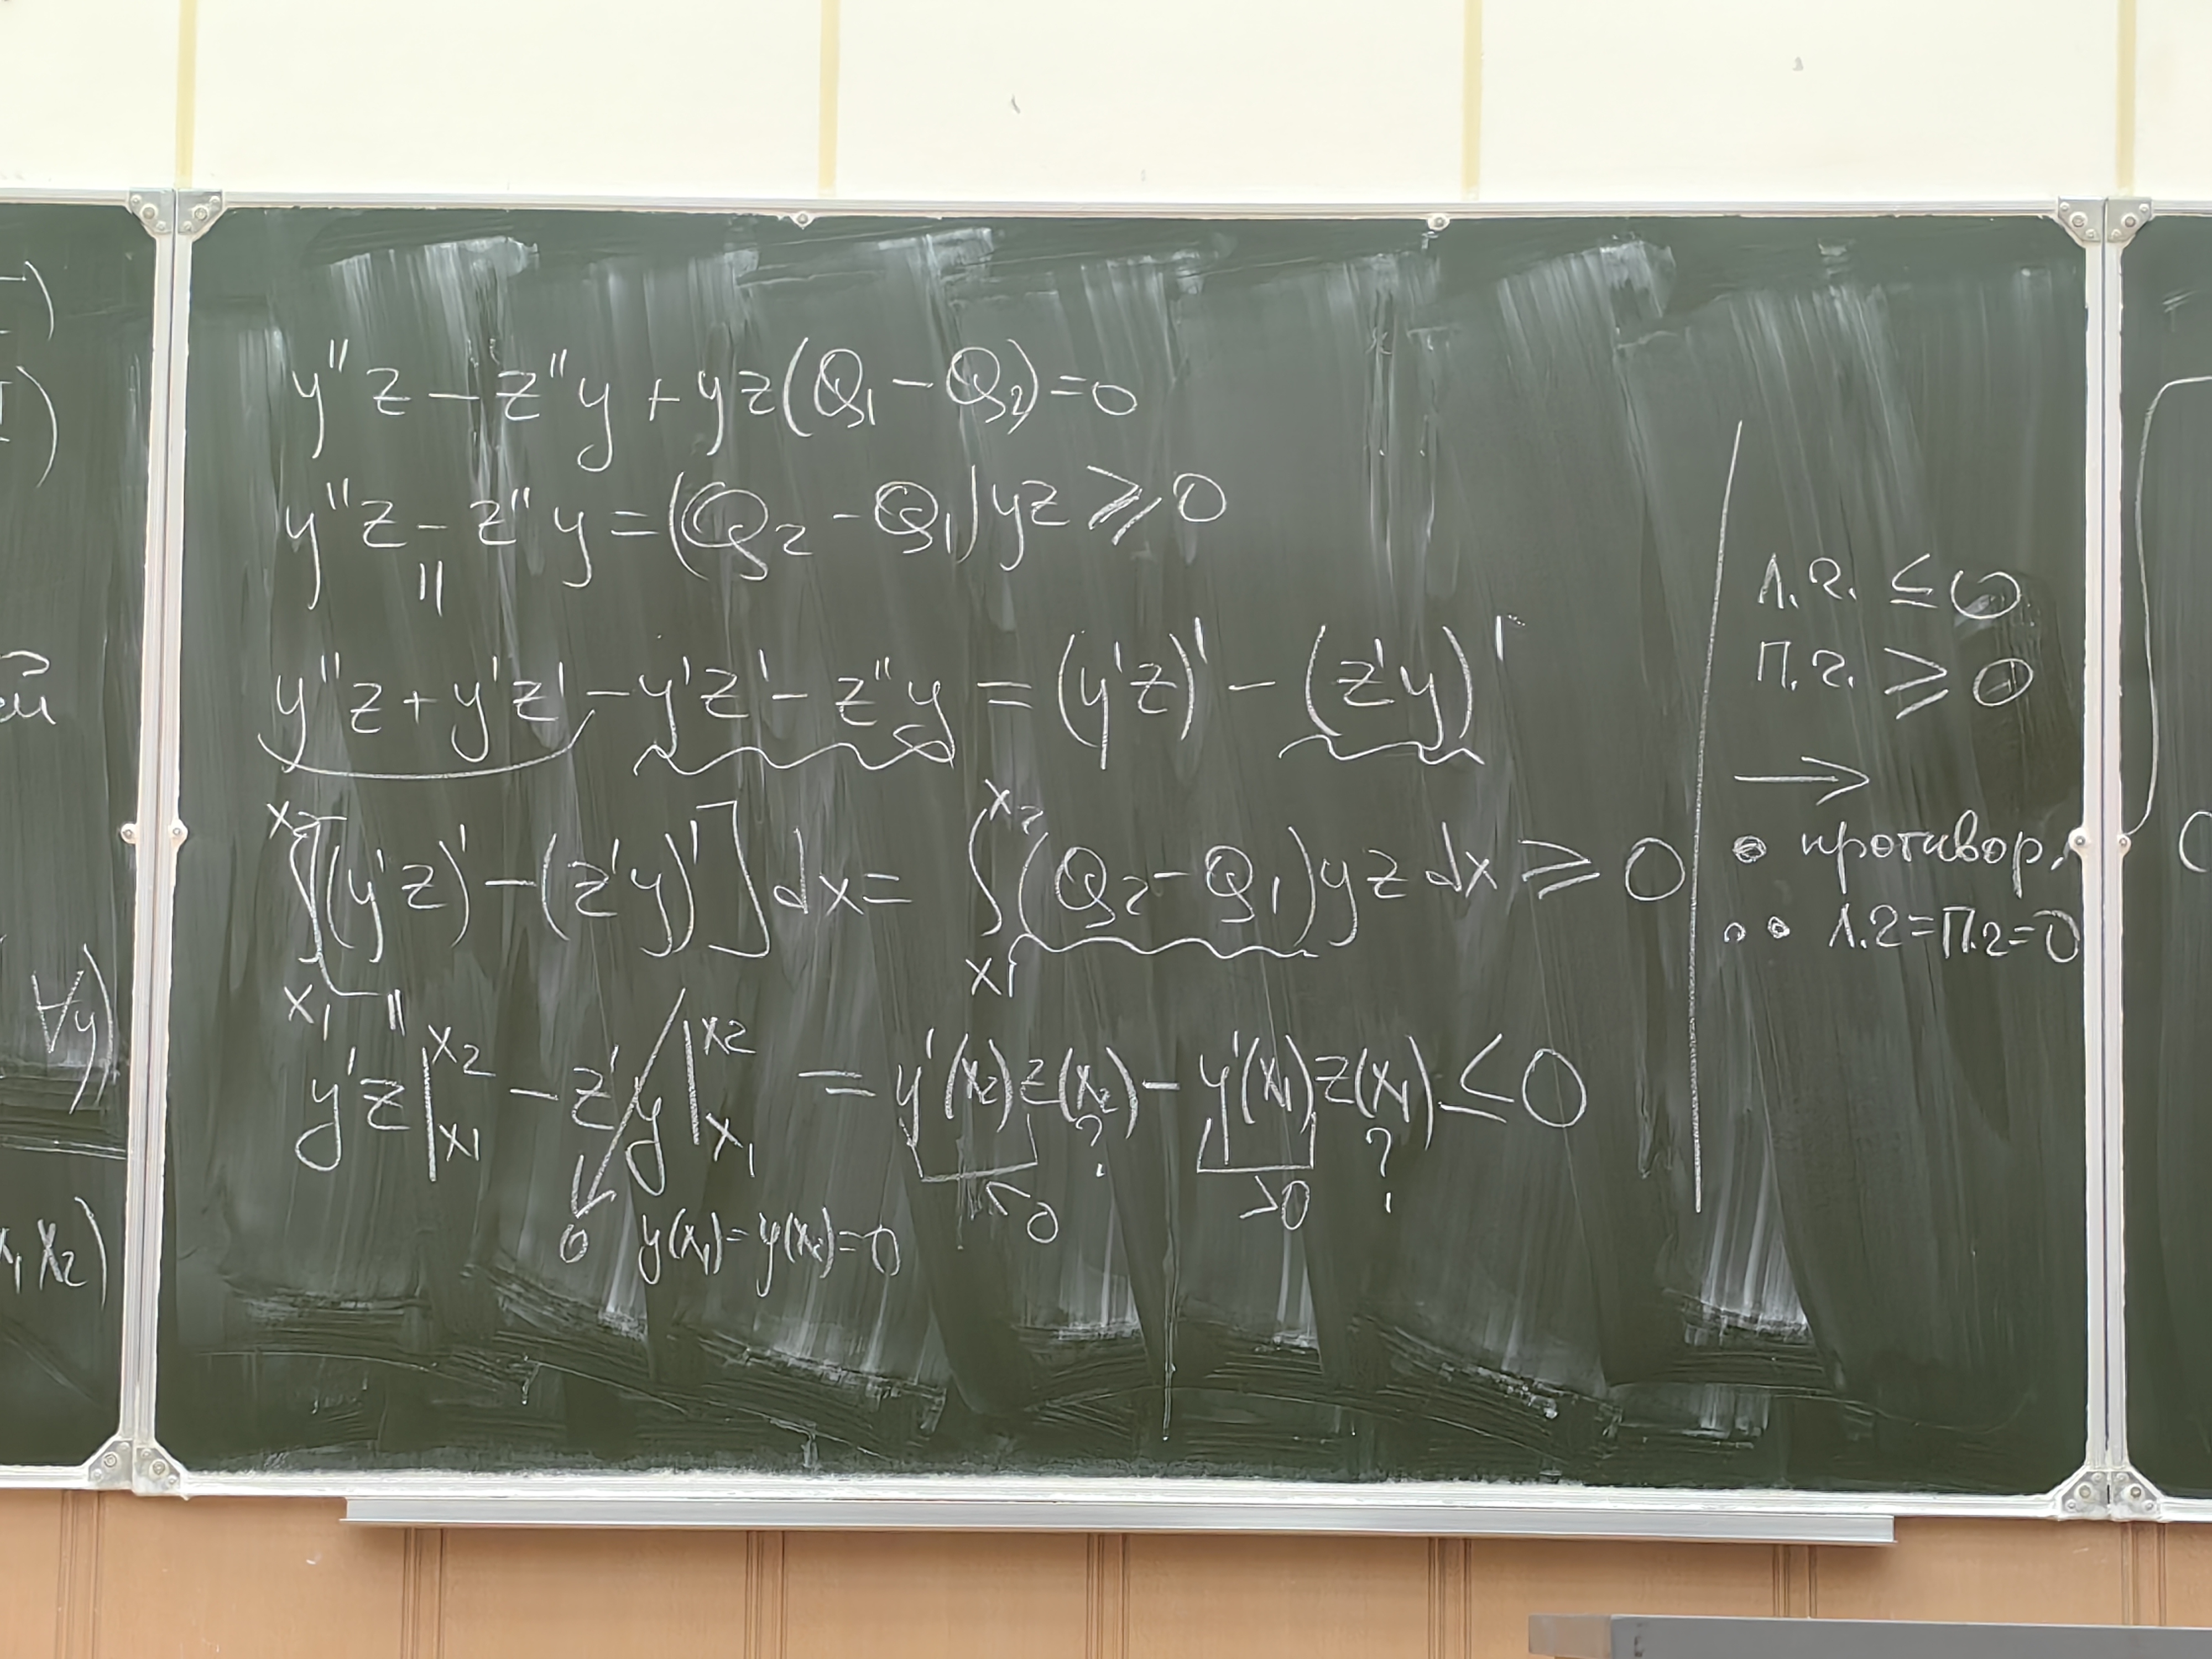 y''z − z''y + yz(Q₁ − Q₂) = 0
y''z − z''y = (Q₂ − Q₁)yz ⩾ 0
||
y''z + y'z' − y'z' − z''y = (y'z)' − (z'y)'
∫_{x₁}^{x₂} [(y'z)' − (z'y)'] dx = ∫_{x₁}^{x₂} (Q₂ − Q₁)yz dx ⩾ 0
||
y'z |_{x₁}^{x₂} − z'y |_{x₁}^{x₂} = y'(x₂)z(x₂) − y'(x₁)z(x₁) ≤ 0
<0 ? >0 ?
0 y(x₁) = y(x₂) = 0
Л.ч. ≤ 0
П.ч. ⩾ 0
→
∘ противор.
∘∘ Л.ч = П.ч = 0
ой
∀y)
x₁ x₂)